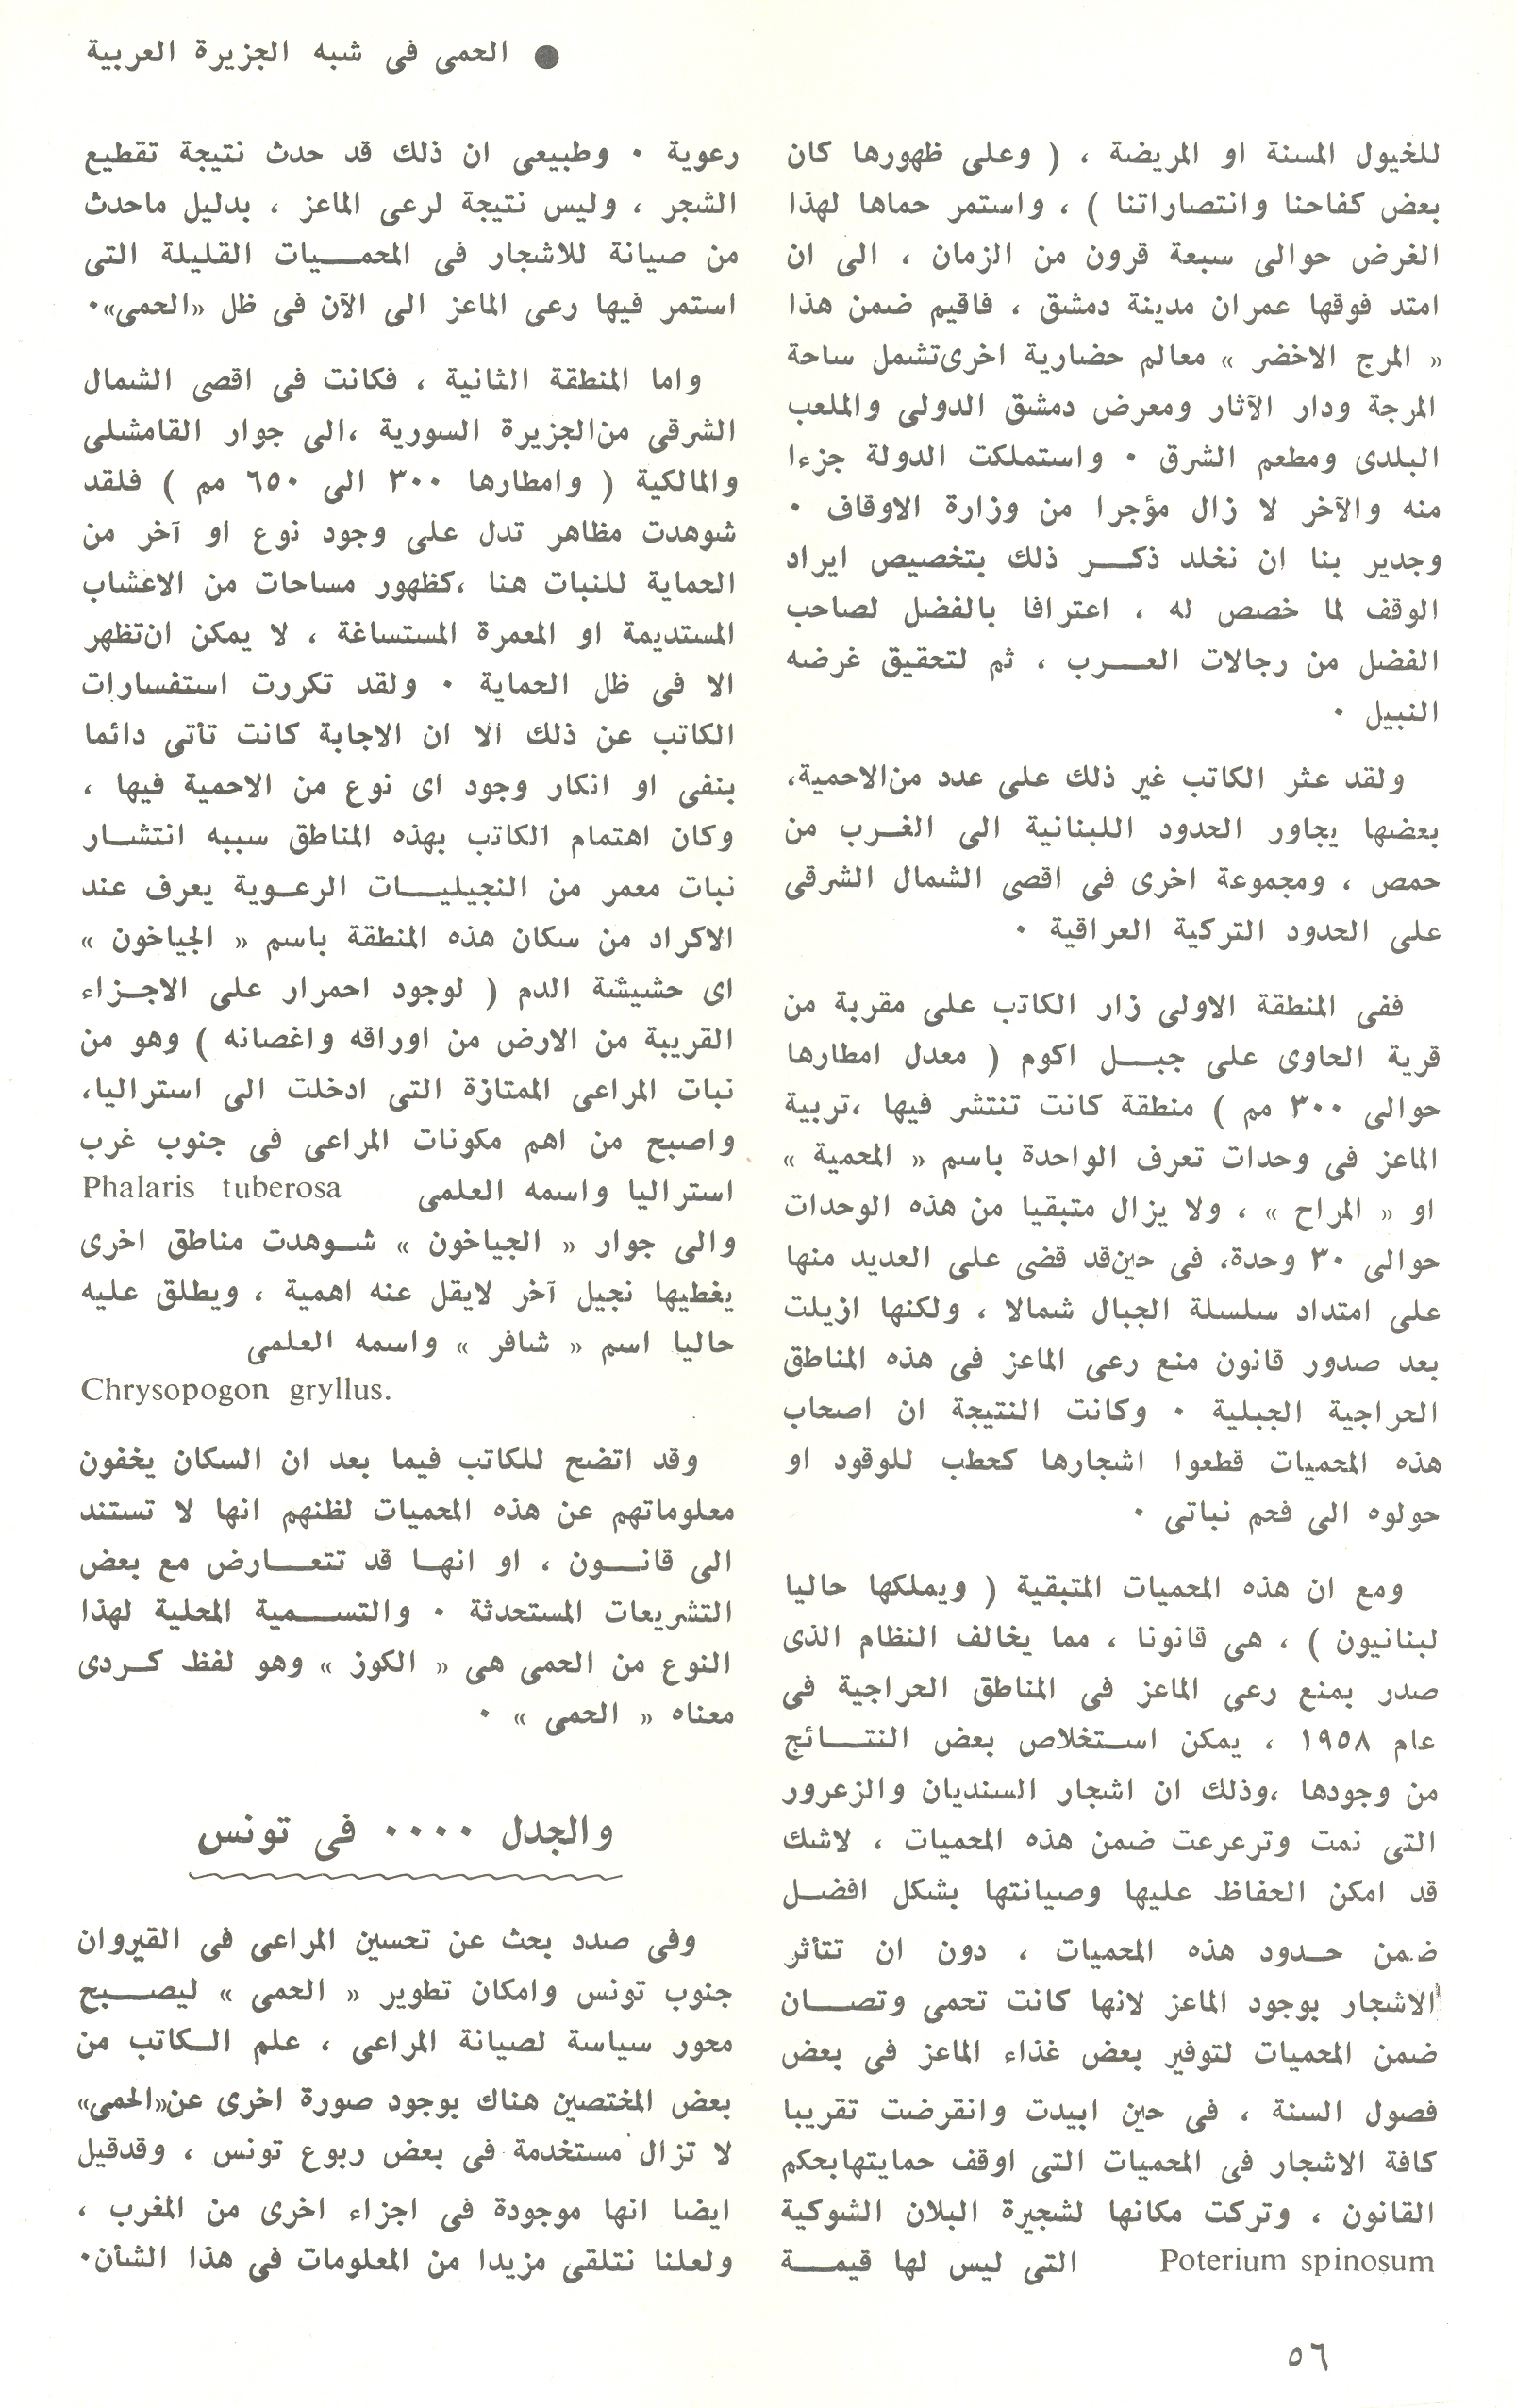 ● الحمى فى شبه الجزيرة العربية
للخيول المسنة او المريضة ، ( وعلى ظهورها كان
بعض كفاحنا وانتصاراتنا ) ، واستمر حماها لهذا
الغرض حوالى سبعة قرون من الزمان ، الى ان
امتد فوقها عمران مدينة دمشق ، فاقيم ضمن هذا
« المرج الاخضر » معالم حضارية اخرى تشمل ساحة
المرجة ودار الآثار ومعرض دمشق الدولى والملعب
البلدى ومطعم الشرق ٠ واستملكت الدولة جزءا
منه والآخر لا زال مؤجرا من وزارة الاوقاف ٠
وجدير بنا ان نخلد ذكر ذلك بتخصيص ايراد
الوقف لما خصص له ، اعترافا بالفضل لصاحب
الفضل من رجالات العرب ، ثم لتحقيق غرضه
النبيل ٠
ولقد عثر الكاتب غير ذلك على عدد من الاحمية،
بعضها يجاور الحدود اللبنانية الى الغرب من
حمص ، ومجموعة اخرى فى اقصى الشمال الشرقى
على الحدود التركية العراقية ٠
ففى المنطقة الاولى زار الكاتب على مقربة من
قرية الحاوى على جبل اكوم ( معدل امطارها
حوالى ٣٠٠ مم ) منطقة كانت تنتشر فيها ،تربية
الماعز فى وحدات تعرف الواحدة باسم « المحمية »
او « المراح » ، ولا يزال متبقيا من هذه الوحدات
حوالى ٣٠ وحدة، فى حين قد قضى على العديد منها
على امتداد سلسلة الجبال شمالا ، ولكنها ازيلت
بعد صدور قانون منع رعى الماعز فى هذه المناطق
الحراجية الجبلية ٠ وكانت النتيجة ان اصحاب
هذه المحميات قطعوا اشجارها كحطب للوقود او
حولوه الى فحم نباتى ٠
ومع ان هذه المحميات المتبقية ( ويملكها حاليا
لبنانيون ) ، هى قانونا ، مما يخالف النظام الذى
صدر بمنع رعى الماعز فى المناطق الحراجية فى
عام ١٩٥٨ ، يمكن استخلاص بعض النتائج
من وجودها ،وذلك ان اشجار السنديان والزعرور
التى نمت وترعرعت ضمن هذه المحميات ، لاشك
قد امكن الحفاظ عليها وصيانتها بشكل افضل
ضمن حدود هذه المحميات ، دون ان تتأثر
الاشجار بوجود الماعز لانها كانت تحمى وتصان
ضمن المحميات لتوفير بعض غذاء الماعز فى بعض
فصول السنة ، فى حين ابيدت وانقرضت تقريبا
كافة الاشجار فى المحميات التى اوقف حمايتها بحكم
القانون ، وتركت مكانها لشجيرة البلان الشوكية
Poterium spinosum التى ليس لها قيمة
رعوية ٠ وطبيعى ان ذلك قد حدث نتيجة تقطيع
الشجر ، وليس نتيجة لرعى الماعز ، بدليل ماحدث
من صيانة للاشجار فى المحميات القليلة التى
استمر فيها رعى الماعز الى الآن فى ظل «الحمى»٠
واما المنطقة الثانية ، فكانت فى اقصى الشمال
الشرقى من الجزيرة السورية ،الى جوار القامشلى
والمالكية ( وامطارها ٣٠٠ الى ٦٥٠ مم ) فلقد
شوهدت مظاهر تدل على وجود نوع او آخر من
الحماية للنبات هنا ،كظهور مساحات من الاعشاب
المستديمة او المعمرة المستساغة ، لا يمكن ان تظهر
الا فى ظل الحماية ٠ ولقد تكررت استفسارات
الكاتب عن ذلك الا ان الاجابة كانت تأتى دائما
بنفى او انكار وجود اى نوع من الاحمية فيها ،
وكان اهتمام الكاتب بهذه المناطق سببه انتشار
نبات معمر من النجيليات الرعوية يعرف عند
الاكراد من سكان هذه المنطقة باسم « الجياخون »
اى حشيشة الدم ( لوجود احمرار على الاجزاء
القريبة من الارض من اوراقه واغصانه ) وهو من
نبات المراعى الممتازة التى ادخلت الى استراليا،
واصبح من اهم مكونات المراعى فى جنوب غرب
استراليا واسمه العلمى Phalaris tuberosa
والى جوار « الجياخون » شوهدت مناطق اخرى
يغطيها نجيل آخر لايقل عنه اهمية ، ويطلق عليه
حاليا اسم « شافر » واسمه العلمى
Chrysopogon gryllus.
وقد اتضح للكاتب فيما بعد ان السكان يخفون
معلوماتهم عن هذه المحميات لظنهم انها لا تستند
الى قانون ، او انها قد تتعارض مع بعض
التشريعات المستحدثة ٠ والتسمية المحلية لهذا
النوع من الحمى هى « الكوز » وهو لفظ كردى
معناه « الحمى » ٠
والجدل ٠٠٠٠ فى تونس
وفى صدد بحث عن تحسين المراعى فى القيروان
جنوب تونس وامكان تطوير « الحمى » ليصبح
محور سياسة لصيانة المراعى ، علم الكاتب من
بعض المختصين هناك بوجود صورة اخرى عن«الحمى»
لا تزال مستخدمة فى بعض ربوع تونس ، وقدقيل
ايضا انها موجودة فى اجزاء اخرى من المغرب ،
ولعلنا نتلقى مزيدا من المعلومات فى هذا الشأن٠
٥٦